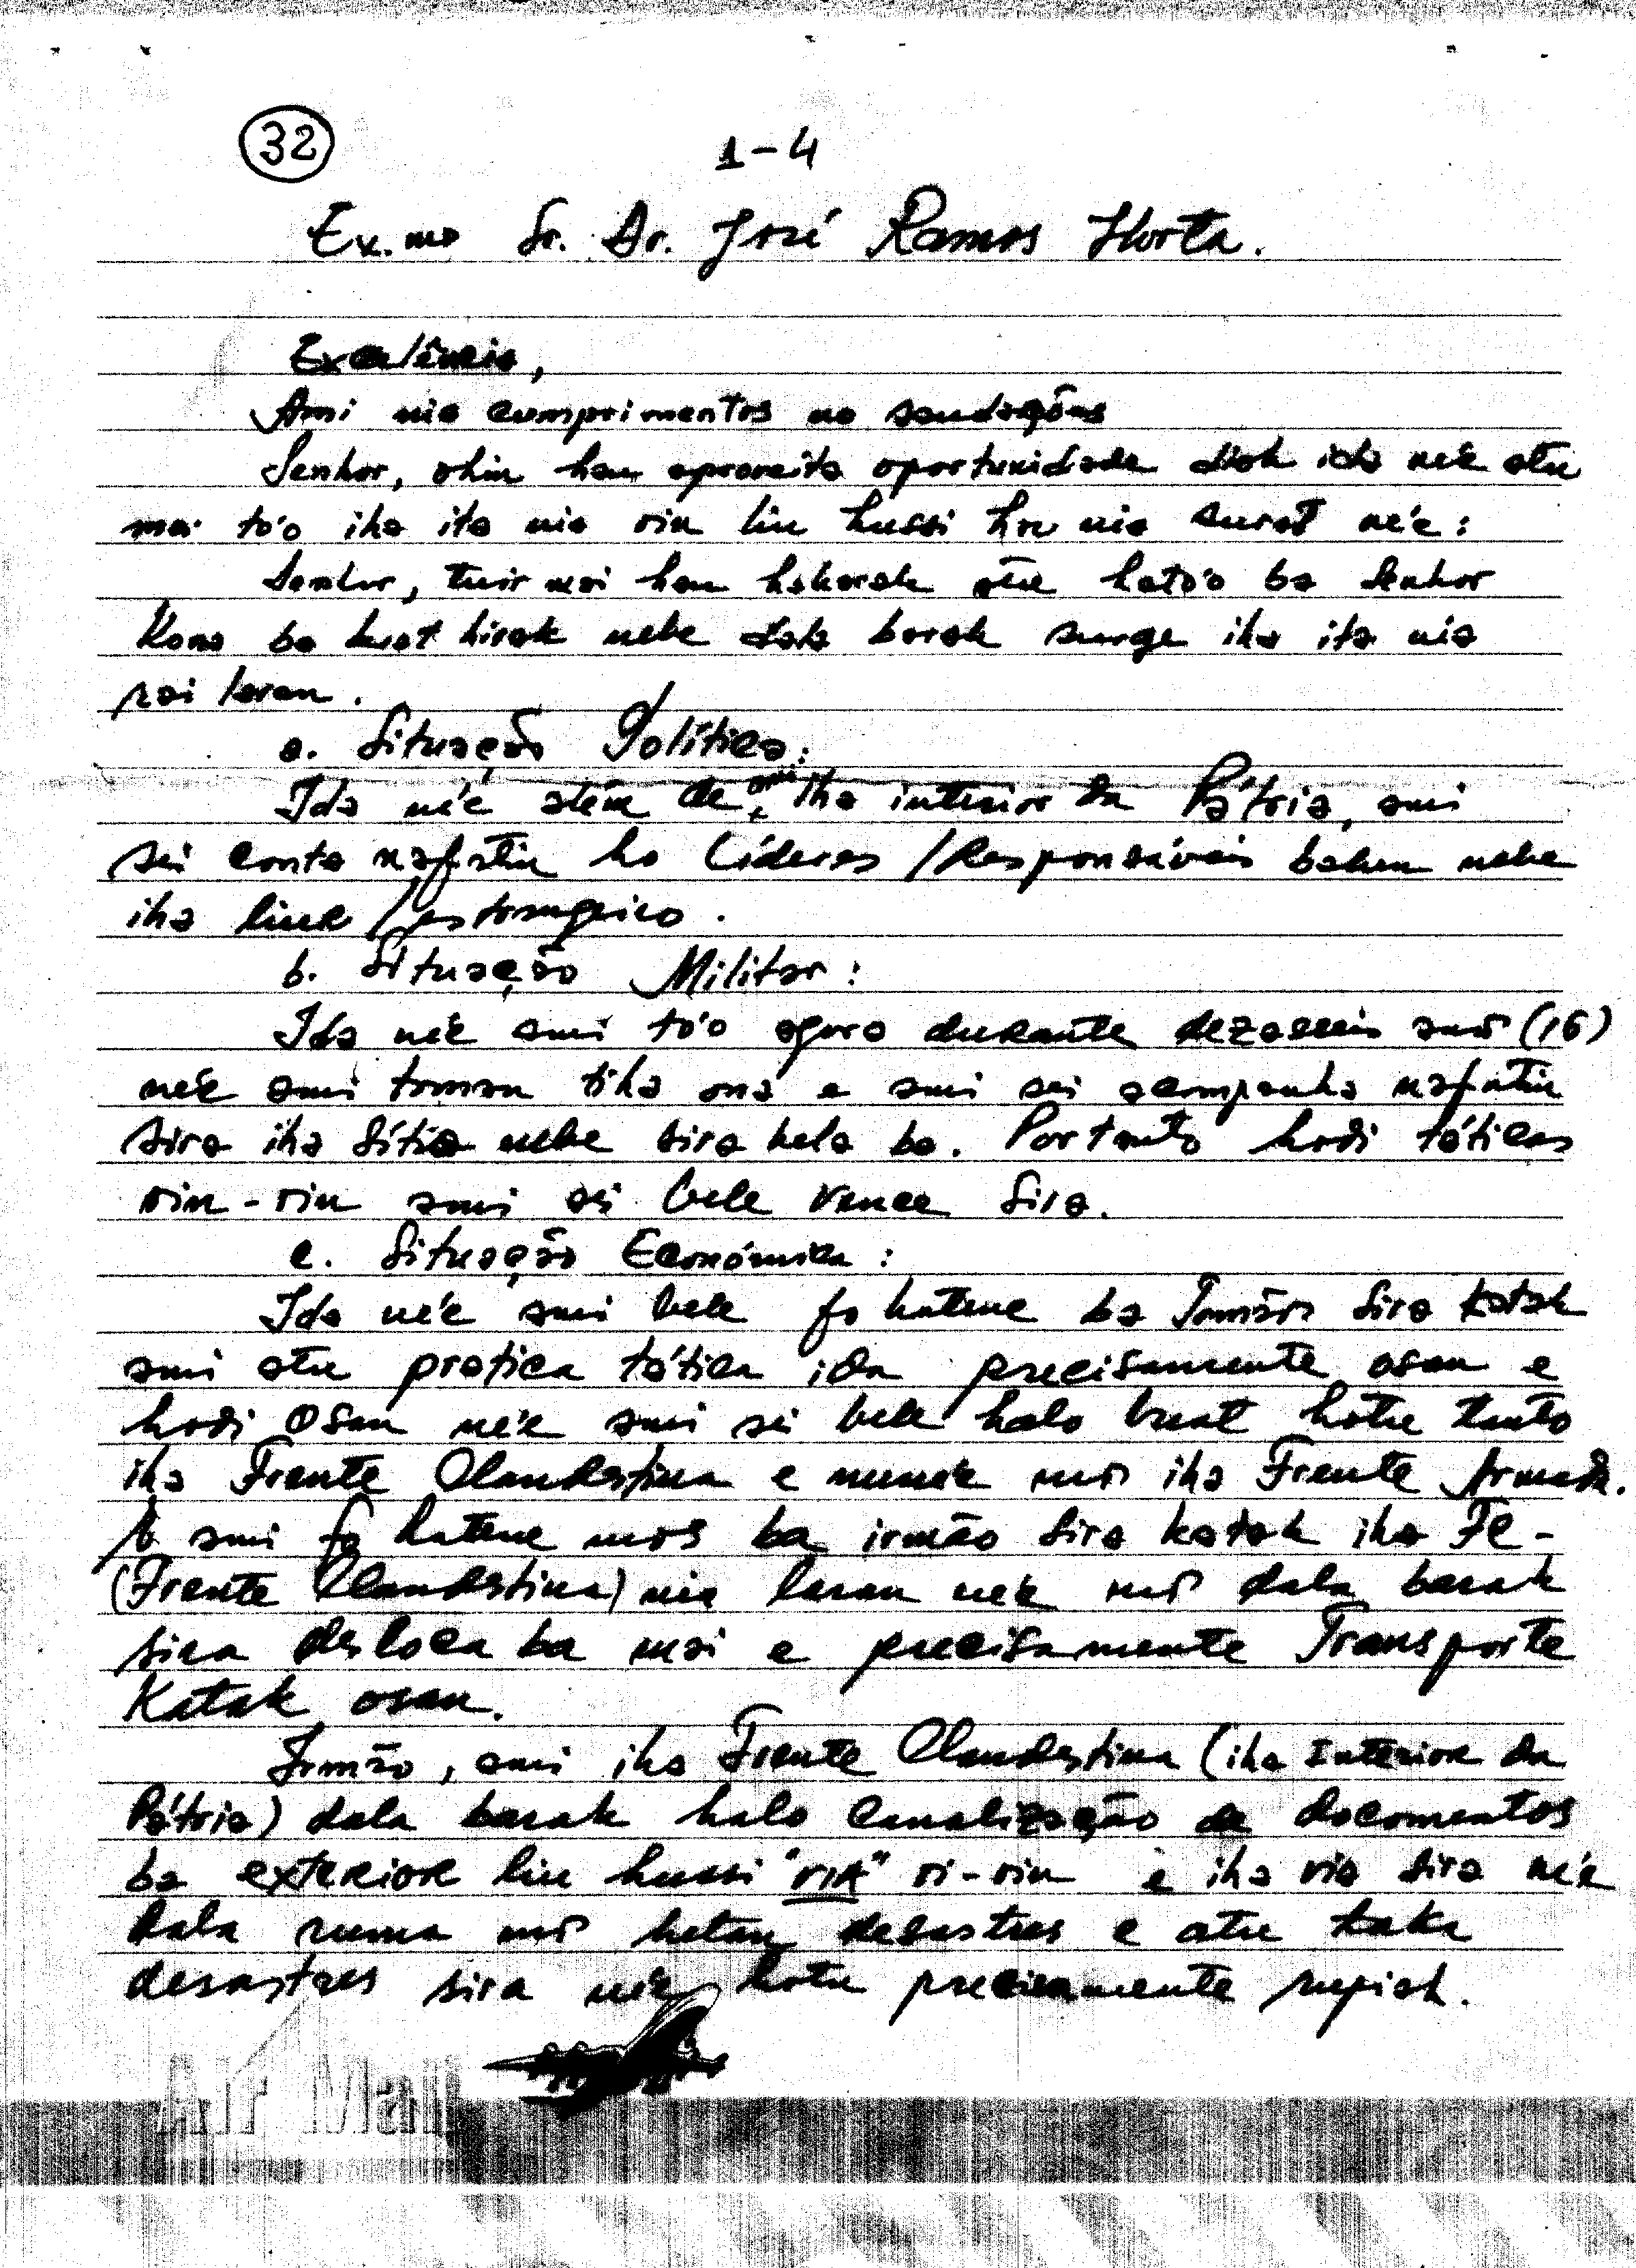 32
1-4
Ex.mo Sr. Dr. José Ramos Horta.
Excelência,
Ami nia cumprimentos no saudações
Senhor, ohin hau aproveita oportunidade diak ida ne'e atu
mai to'o iha ita nia oin liu hussi hau nia surat ne'e:
Senhor, tuir mai hau hakarak atu hato'o ba Senhor
Kona ba buat hirak nebe dala barak surge iha ita nia
rai laran.
a. Situação Política:
Ida ne'e além de ami iha interior da Pátria, ami
sei conta nafatin ho Líderes / Responsáveis balun nebe
iha liur / estrangeiro.
b. Situação Militar:
Ida ne'e ami to'o agora durante dezasseis anos (16)
ne'e ami toman tiha ona e ami sei acompanha nafatin
sira iha sítio nebe sira hela ba. Portanto hodi táticas
oin-oin ami sei bele vence sira.
c. Situação Económica:
Ida ne'e ami bele fo hatene ba Irmãos sira katak
ami atu pratica tática ida precisamente osan e
hodi osan ne'e ami sei bele halo buat hotu tanto
iha Frente Clandestina e nune'e mós iha Frente Armada.
ami fo hatene mos ba irmão sira katak iha FC-
(Frente Clandestina) nia laran ne'e mós dala barak
sira desloca ba mai e precisamente Transporte
Katak osan.
Irmão, ami iha Frente Clandestina (iha Interior da
Pátria) dala barak halo canalização de documentos
ba exterior liu hussi "via" oi-oin e iha via sira ne'e
dala ruma mós hetan desastres e atu taka
desastres sira ne'e hotu precisamente rupiah.
Air Mail